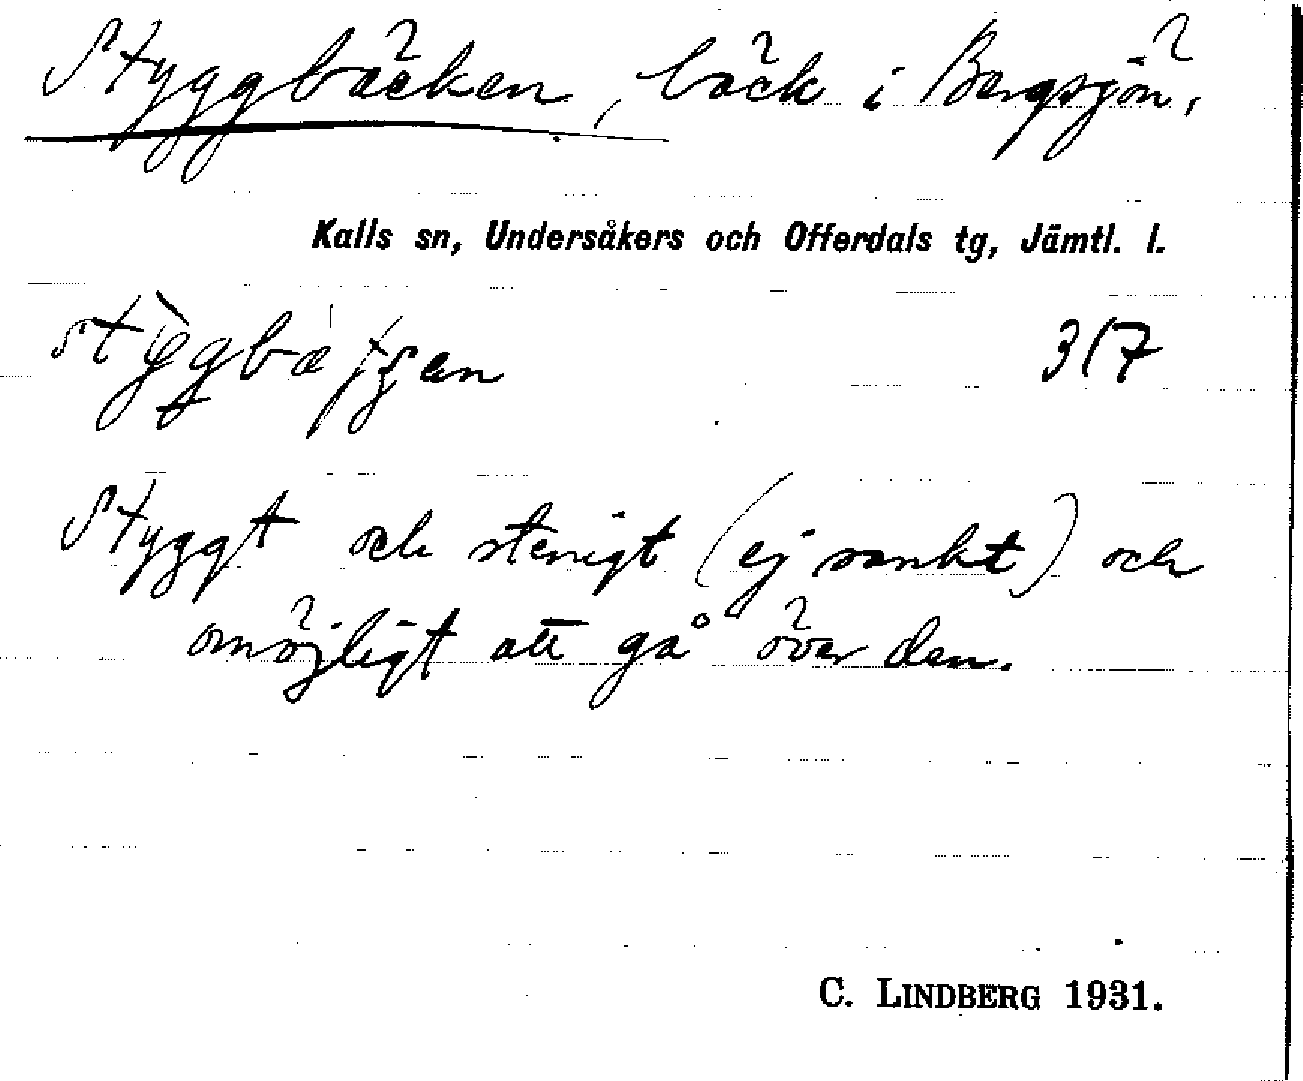 Styggbäcken, bäck i Bergsjön,
Kalls sn, Undersåkers och Offerdals tg, Jämtl. l.
317
Styggt och stenigt (ej sankt) och
omöjligt att gå över den.
C. LINDBERG 1931.